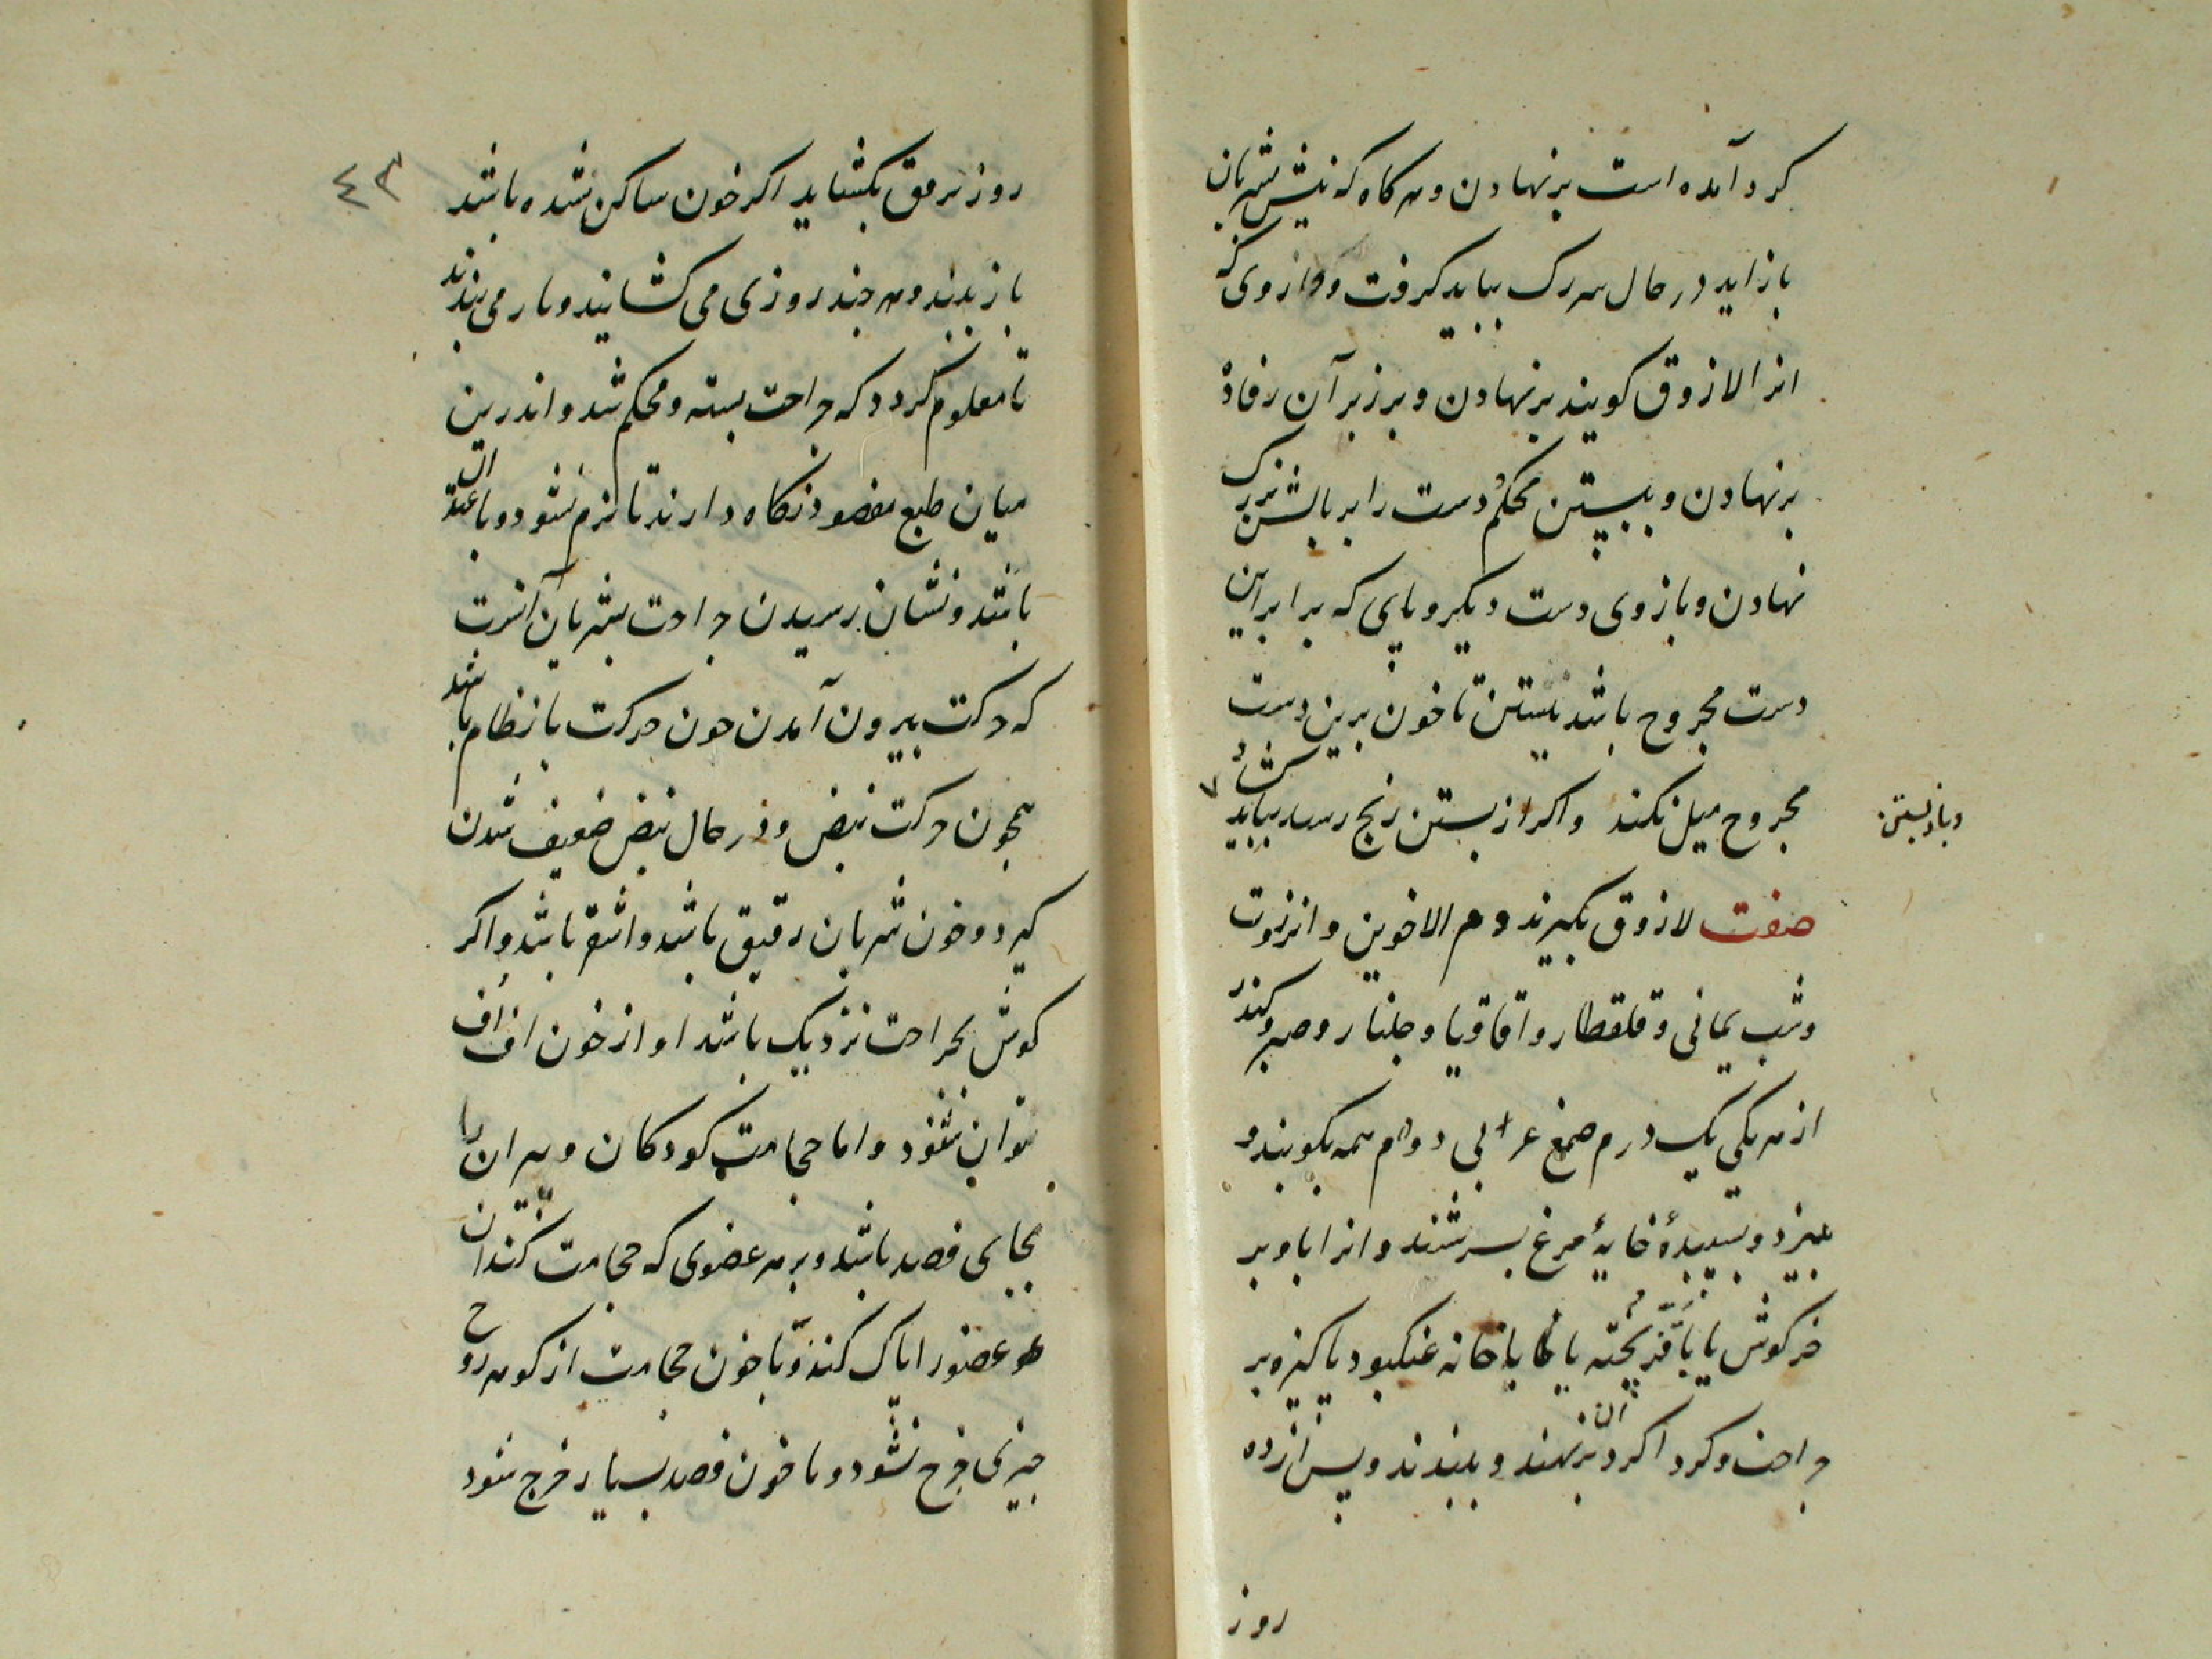 کرد آمده است برنهادن و هر کاه که نیش بشریان
باز اید در حال سر رک بباید کرفت و داروی که
انرا لازوق کویند برنهادن و بر زبر آن رفادهٔ
برنهادن و ببستن محکم و دست را بر بالش بزرک
نهادن و بازوی دست دیکر و پای که برابر این
دست مجروح باشد ببستن تا خون برین دست
مجروح میل نکند واکر از بستن رنج رسد بباید کشاد
و باز بستن
صفت لازوق بکیرند دم الاخوین و انزروت
وشب یمانی و قلقطار و اقاقیا و جلنار و صبر و کندر
از هر یکی یک درم صمغ عربی دو درم همه بکوبند و
ببیزند و بسپیدهٔ خایهٔ مرغ بسرشند و انرا با وبر
خرکوش یا با قز پخته یا با خانه عنکبوت پاکیزه بر
جراحت و کرد اکرد ان برنهند و ببندند و پس از ده
روز
٤٣
روز برفق بکشاید اکر خون ساکن شده باشد
باز بندند و هر چند روزی می کشایند و باز می بندند
تا معلوم کردد که جراحت بسته و محکم شد و اندرین
میان طبع مفصود نکاه دارند تا نرم نشود و با اعتدال
باشد و نشان رسیدن جراحت بشریان آنست
که حرکت بیرون آمدن خون حرکت با نظام باشد
همچون حرکت نبض و در حال نبض ضعیف شدن
کیرد و خون شریان رقیق باشد و اشقر باشد و اکر
کوش بجراحت نزدیک باشد اواز خون اف اف
بتوان شنود و اما حجامت کودکان و پیران را
بجای فصد باشد و بر هر عضوی که حجامت کنند ان
عضو را پاک کند و با خون حجامت از کوهر روح
چیزی خرج نشود و با خون فصد بسیار خرج شود